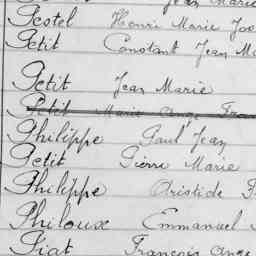 Jean Marie
Postel Henri Marie Jos
Petit Constant Jean Ma
Petit Jean Marie
Petit Marie Ange Fran
Philippe Paul Jean
Petit Pierre Marie
Philippe Aristide F
Philoux Emmanuel
Piat François Ange